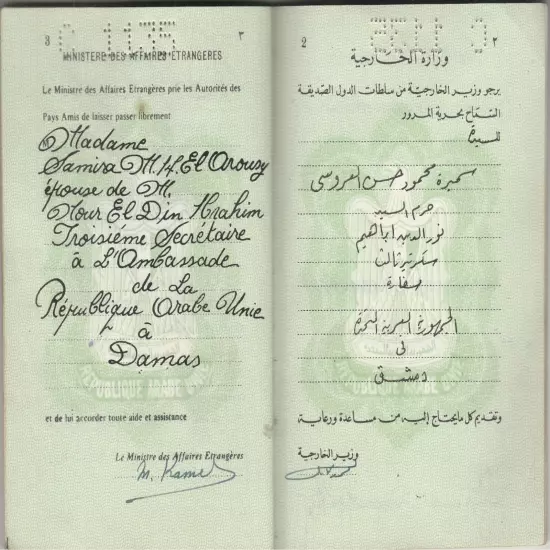 3
٣
MINISTERE DES AFFAIRES ETRANGERES
Le Ministre des Affaires Etrangères prie les Autorités des
Pays Amis de laisser passer librement
Madame
Samira M. H. El Arousy
épouse de M.
Nour El Din Ibrahim
Troisiéme Secrétaire
à L'Ambassade
de La
République Arabe Unie
à
Damas
et de lui accorder toute aide et assistance
Le Ministre des Affaires Etrangères
M. Kamel
2
٢
وزارة الخارجية
يرجو وزير الخارجية من سلطات الدول الصديقة
السماح بحرية المرور
للسيدة
سميرة محمود حسن العروسى
حرم السيد
نور الدين ابراهيم
سكرتير ثالث
سفارة
الجمهورية العربية المتحدة
فى
دمشق
وتقديم كل ما يحتاج إليه من مساعدة ورعاية
وزير الخارجية